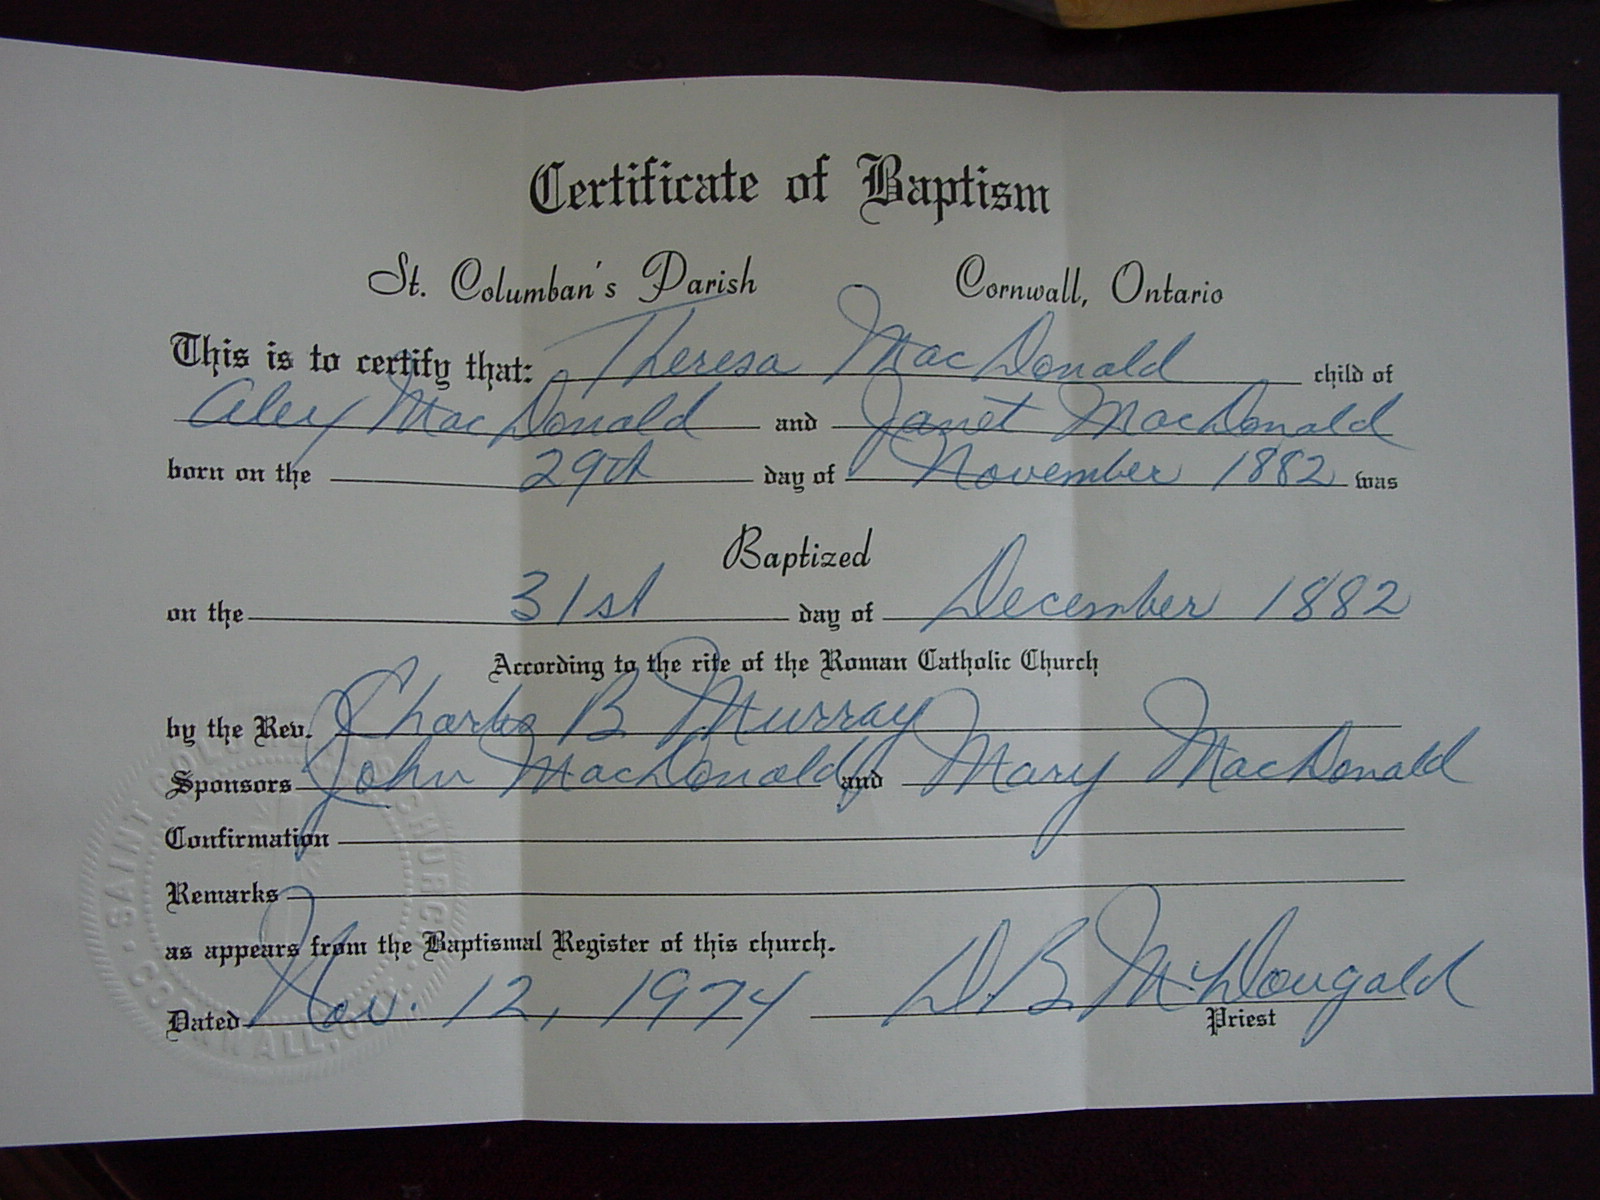 Certificate of Baptism
St. Columban's Parish Cornwall, Ontario
This is to certify that: Theresa MacDonald child of
Alex MacDonald and Janet MacDonald
born on the 29th day of November 1882 was
Baptized
on the 31st day of December 1882
According to the rite of the Roman Catholic Church
by the Rev. Charles B Murray
Sponsors John MacDonald and Mary MacDonald
Confirmation
Remarks
as appears from the Baptismal Register of this church.
Dated Nov. 12, 1974 D.B. McDougald
Priest
SAINT COLUMBAN'S CHURCH
CORNWALL, ONT.